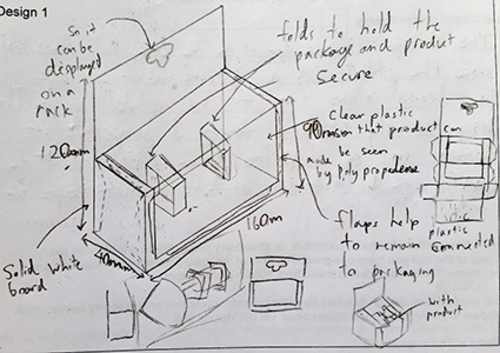 Design 1
So it
can be
displayed
on a
Rack
folds to hold the
package and product
secure
clear plastic
so that product can
be seen
made by polypropelene
120mm
90mm
160m
40mm
Solid white
board
flaps help
to remain connected
to packaging
plastic
with
product